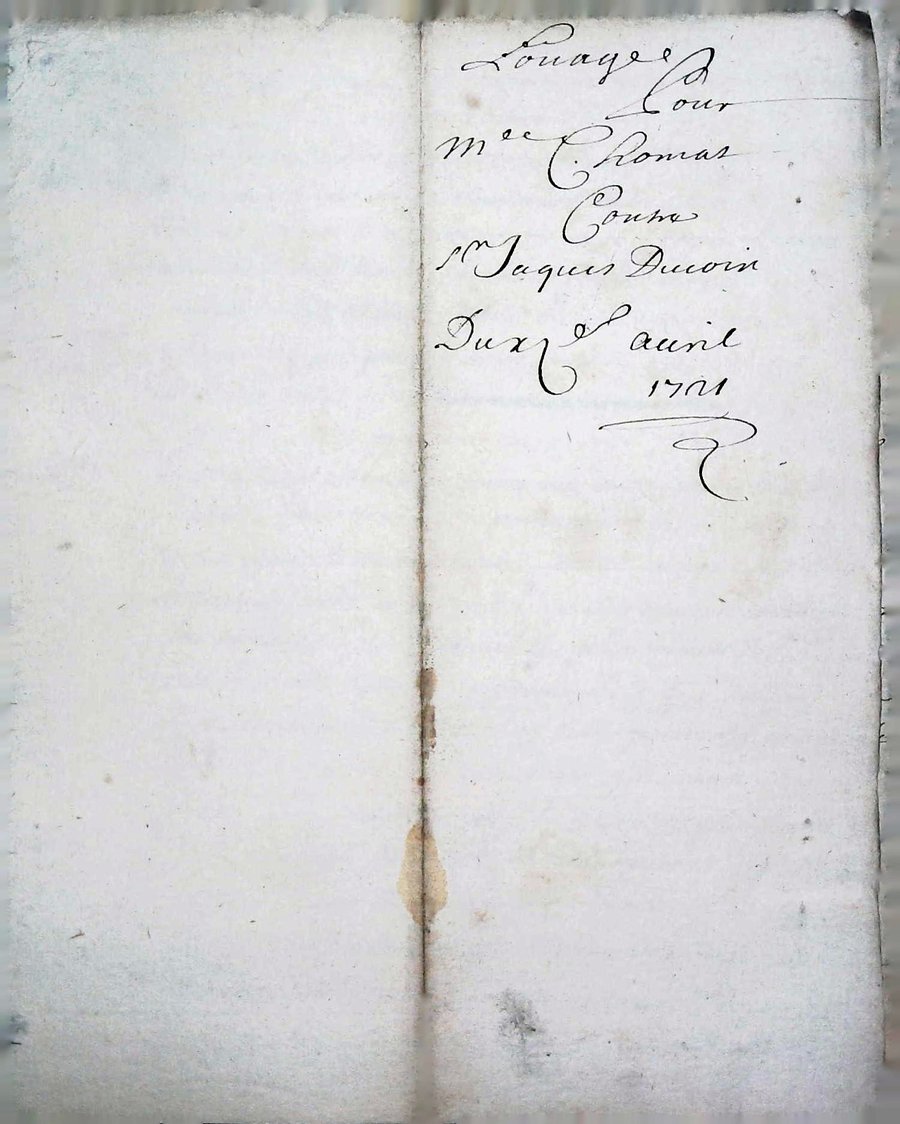 Louagee
Pour
Mee Thomas
Contre
Sr Jaques Ducoin
Du avril
1721